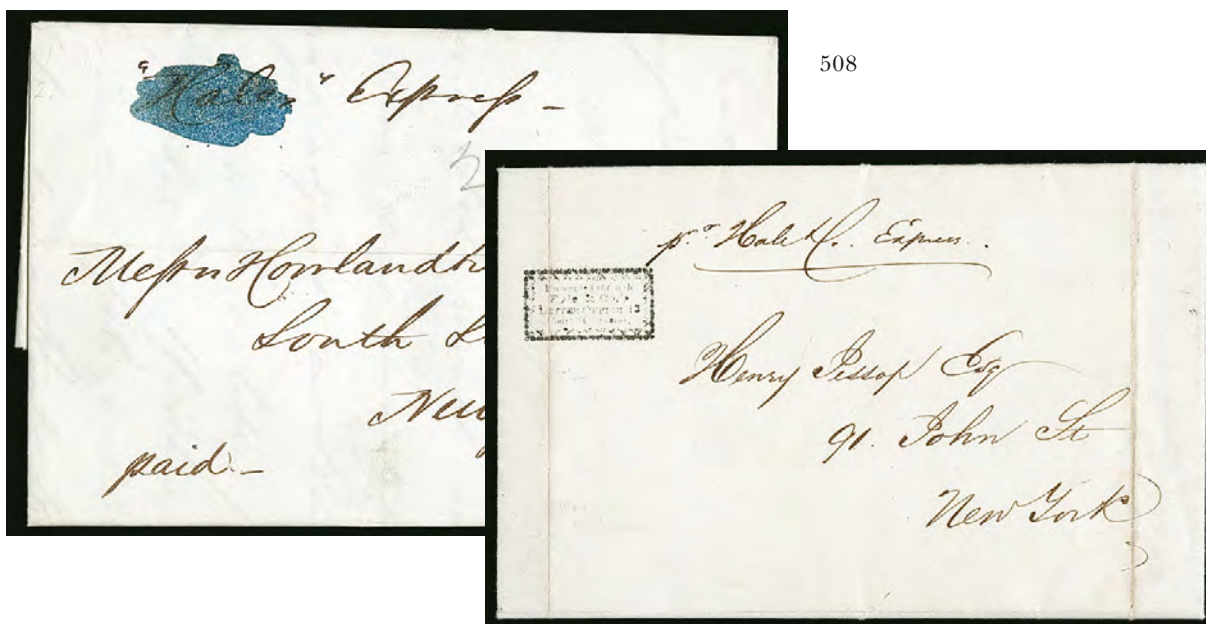 508
"Hale" Express -
Messrs Howland
South
New
paid. -
pr Hale & Co. Express.
Forwarded through
& Co's
13
Henry Jessop Esq
91. John St
New York